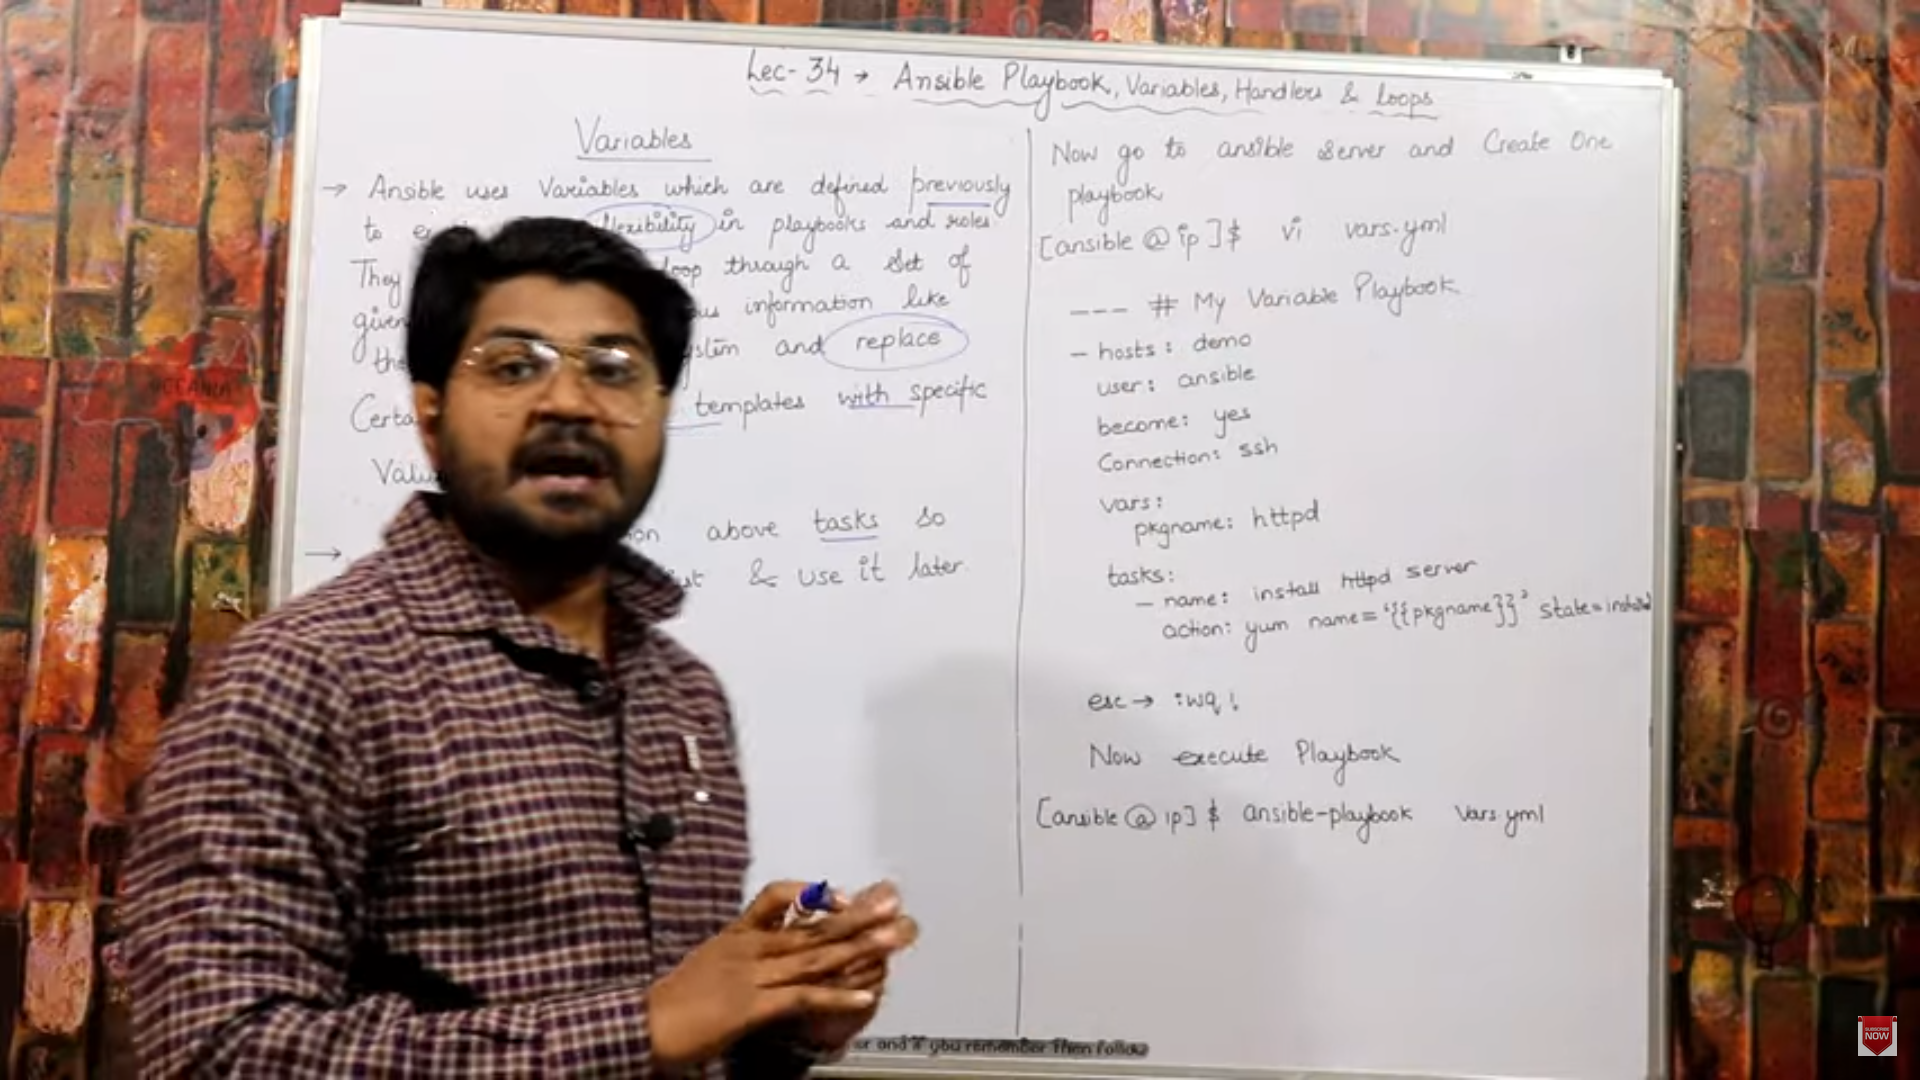 Lec-34 → Ansible Playbook, Variables, Handlers & Loops
Variables
→ Ansible uses Variables which are defined previously
to flexibility in playbooks and roles
They loop through a set of
given information like
and replace
templates with specific
→ above tasks so
& use it later
Now go to ansible Server and Create One
playbook
[ansible @ ip]$ vi vars.yml
--- # My Variable Playbook
- hosts: demo
user: ansible
become: yes
Connection: ssh
vars:
pkgname: httpd
tasks:
- name: install httpd server
action: yum name='{{pkgname}}' state=installed
esc → :wq!
Now execute Playbook
[ansible @ ip]$ ansible-playbook Vars.yml
and if you remember Then follow
SUBSCRIBE
NOW